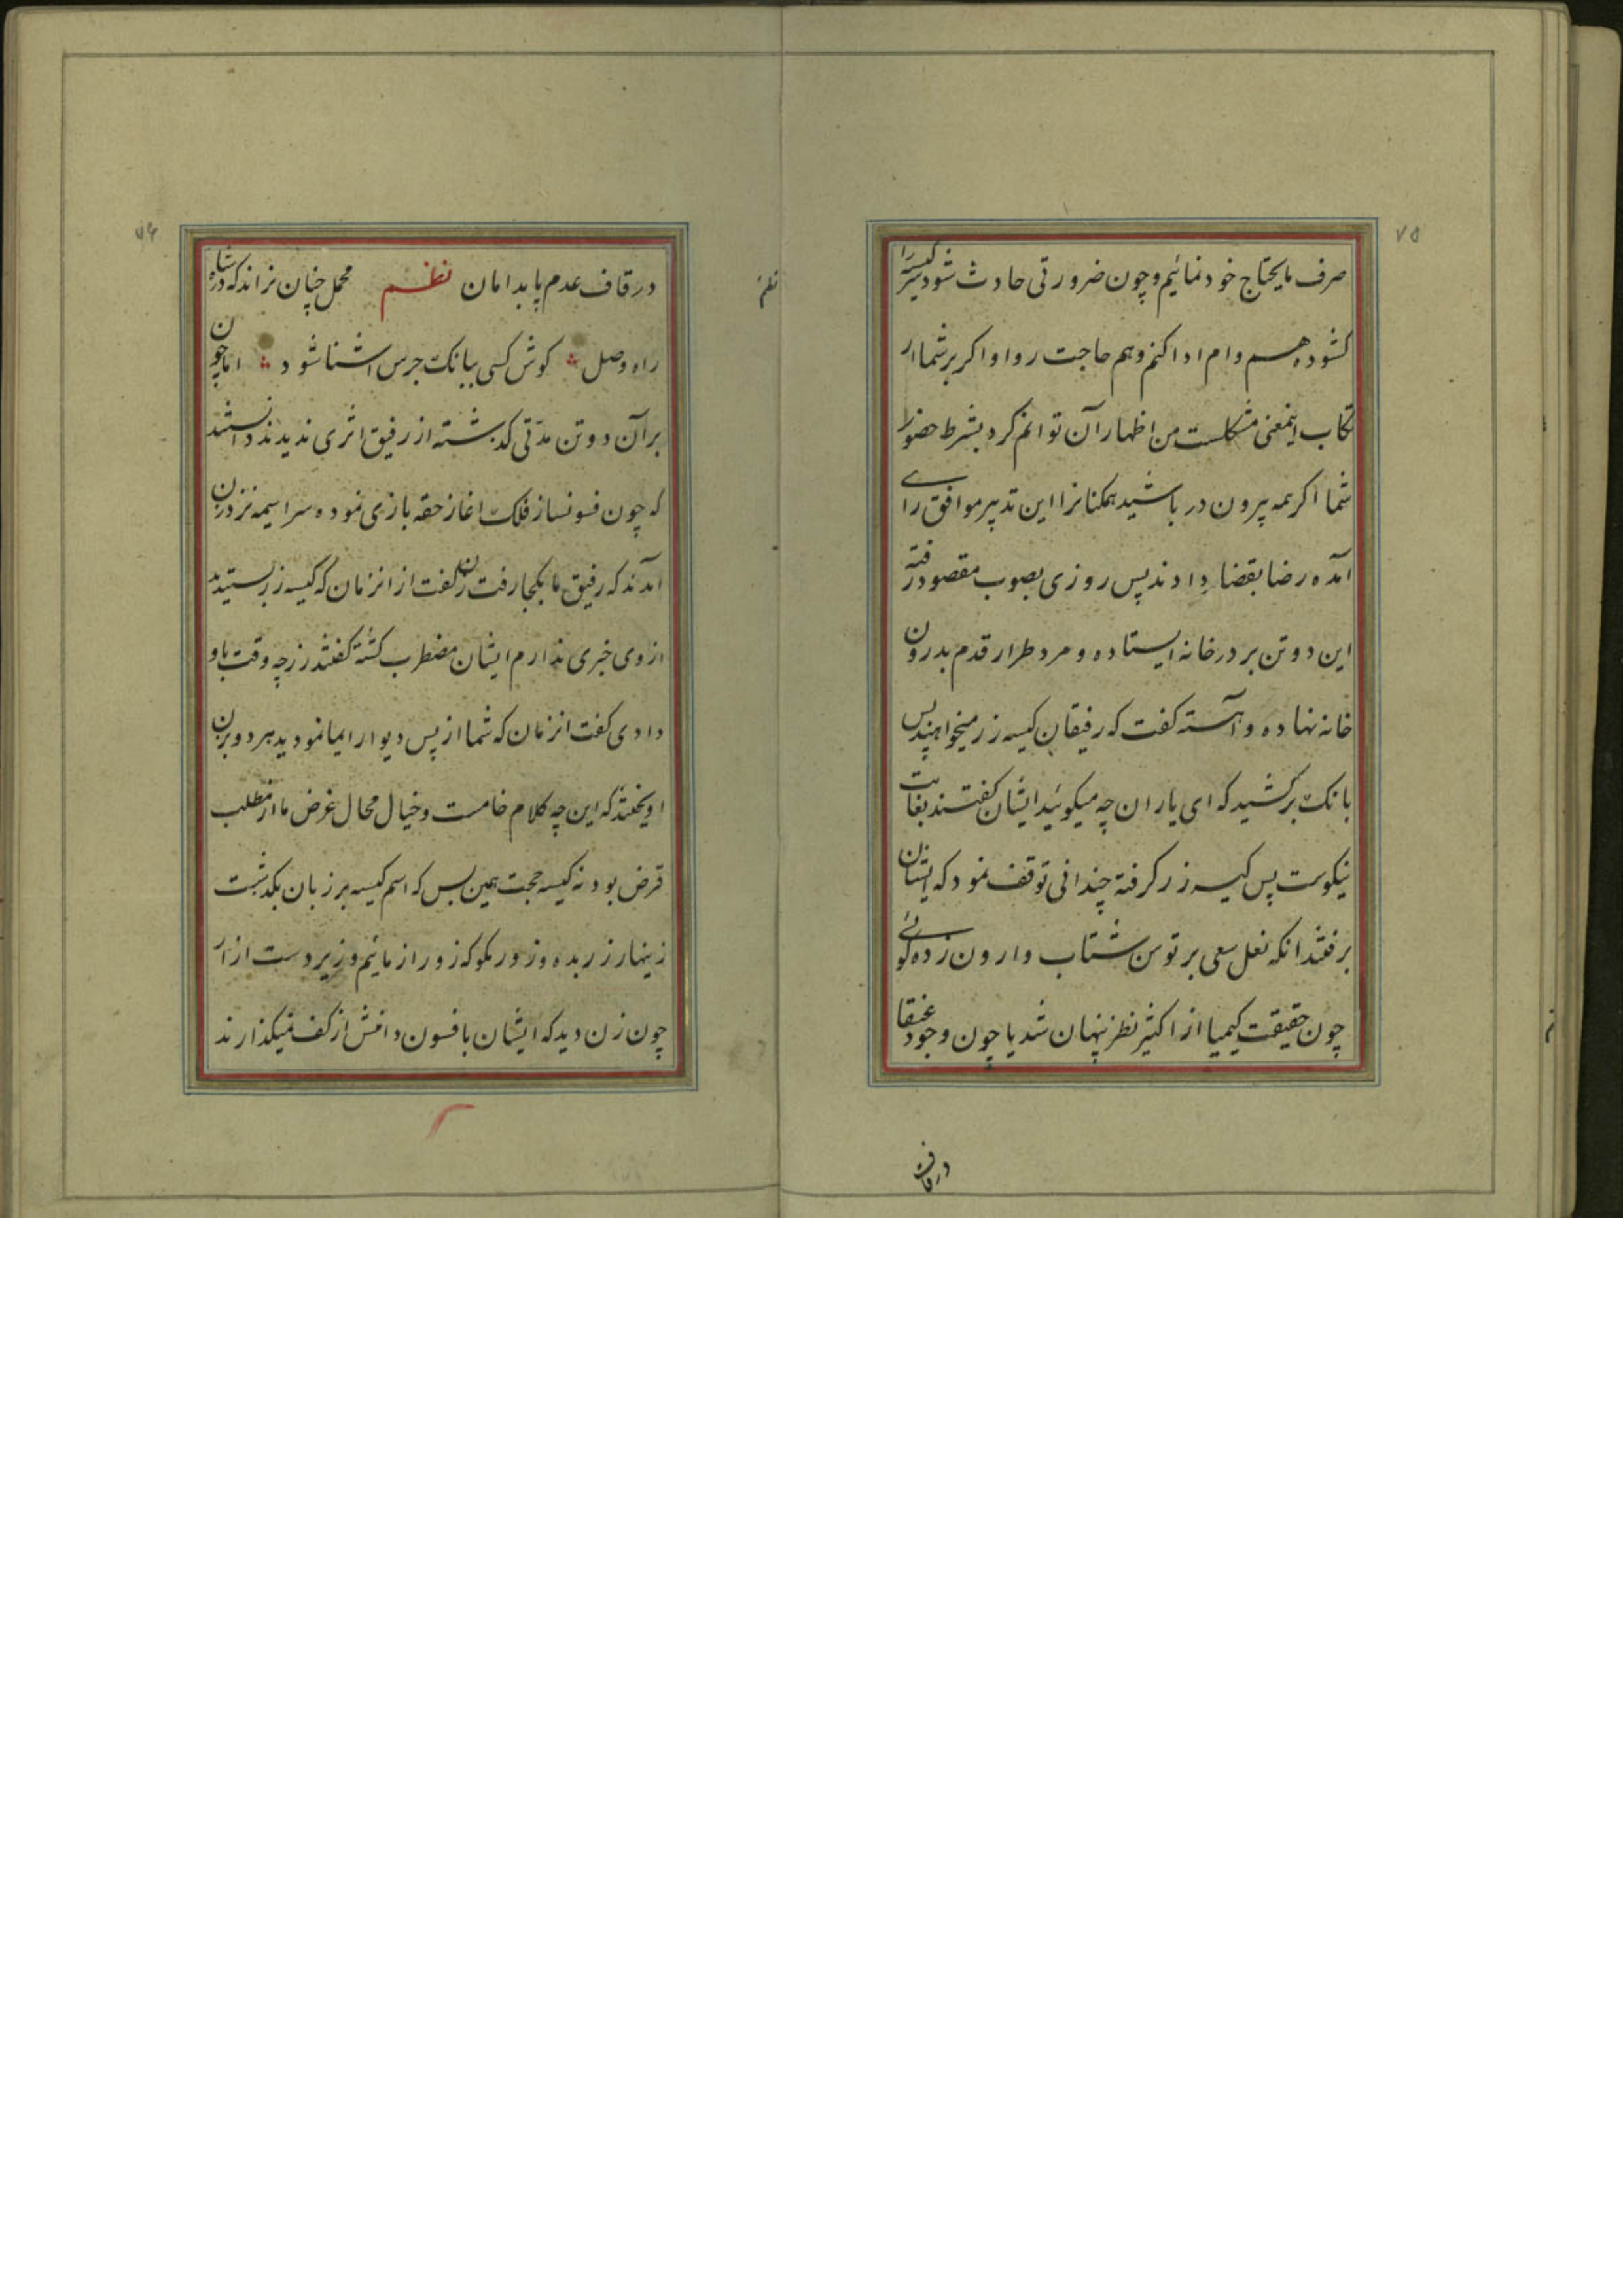 ۷۵
صرف مایحتاج خود نمائیم و چون ضرورتی حادث شود سر کیسه را
کشوده هم وام ادا کنم و هم حاجت روا و اکر بر شما ار
تکاب اینمعنی مشکلست من اظهار آن توانم کرد بشرط حضور
شما اکرچه بیرون در باشید همکنانرا این تدبیر موافق رای
آمده رضا بقضا دادند پس روزی بصوب مقصود رفته
این دو تن بر در خانه ایستاده و مرد طرار قدم بدرون
خانه نهاده و آهسته کفت که رفیقان کیسه زر میخواهند پس
بانک برکشید که ای یاران چه میکوئید ایشان کفتند بغایت
نیکوست پس کیسه زر کرفته چندانی توقف نمود که ایشان
برفتند انکه نعل سعی بر توسن شتاب وارون زده کوئی
چون حقیقت کیمیا از اکثیر نظر پنهان شد یا چون وجود عنقا
در قاف
۷۶
در قاف عدم پا بدامان نظم محمل چنان نراند که در شاه
راه وصل کوش کسی ببانک جرس اشنا شود اما چون
بر آن دو تن مدّتی کذشته از رفیق اثری ندیدند دانستند
که چون فسونساز فلک اغاز حقه بازی نموده سراسیمه نزد زن
آمدند که رفیق ما بکجا رفت زن کفت از انزمان که کیسه زر ستید
از وی خبری ندارم ایشان مضطرب کشته کفتند زر چه وقت باو
دادی کفت انزمان که شما از پس دیوار ایما نمودید هر دو بزن
اویختند که این چه کلام خامست و خیال محال غرض ما از مطلب
قرض بود نه کیسه حجت همین بس که اسم کیسه بر زبان بکذشت
زینهار زر بده و زور مکو که زور ازمائیم و زبردست ازار
چون زن دید که ایشان بافسون دامنش از کف نمیکذارند